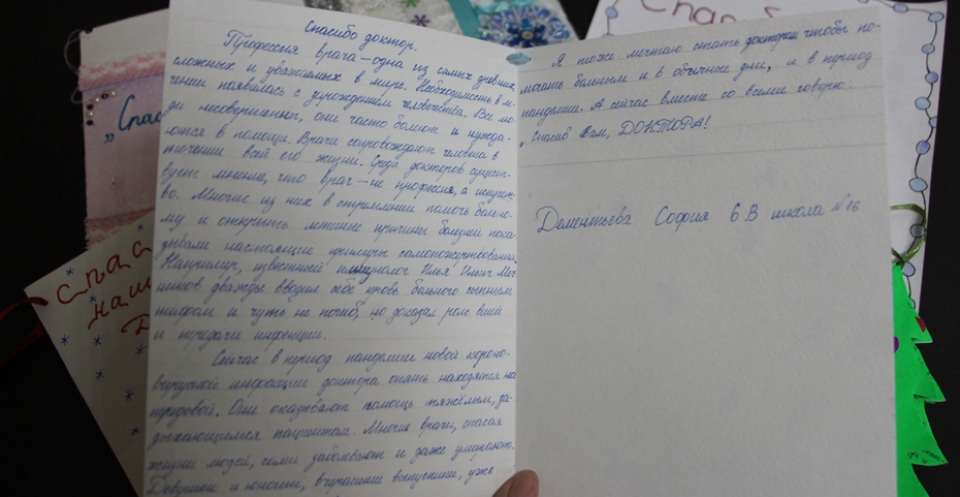 Спасибо доктор.
Профессия врача – одна из самых древних,
сложных и уважаемых в мире. Необходимость в ле-
чении появилась с зарождением человечества. Все лю-
ди несовершенны, они часто болеют и нужда-
ются в помощи. Врачи сопровождают человека в
течении всей его жизни. Среди докторов сущест-
вует мнение, что врач – не профессия, а искусст-
во. Многие из них в стремлении помочь больно-
му и открыть истинные причины болезней пока-
зывали настоящие примеры самопожертвования.
Например, известный иммунолог Илья Ильич Меч
ников дважды вводил себе кровь больного сыпным
тифом и чуть не погиб, но доказал роль вшей
и передачи инфекции.
Сейчас в период пандемии новой корона-
вирусной инфекции доктора опять находятся на
передовой. Они оказывают помощь тяжёлым, за-
дыхающимся пациентам. Многие врачи, спасая
жизни людей, сами заболевают и даже умирают.
Девушки и юноши, вчерашние выпускники, уже
Я тоже мечтаю стать доктором чтобы по-
могать больным и в обычные дни, и в период
пандемии. А сейчас вместе со всеми говорю:
„Спасиб Вам, ДОКТОРА!
Дементьева София 6 В школа №16
„Спас
Спас
наш
Д
Спасиб